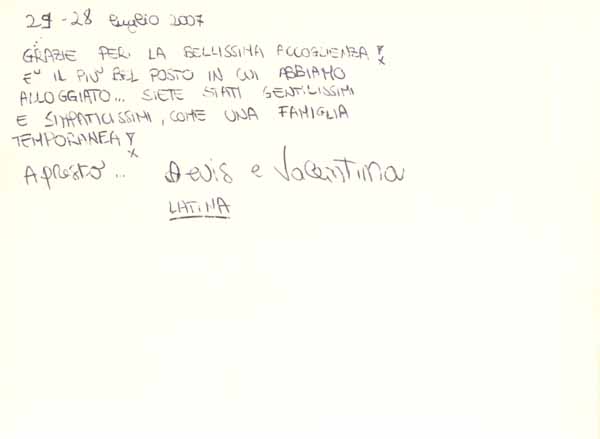 29-28 luglio 2007
GRAZIE PER LA BELLISSIMA ACCOGLIENZA!
E' IL PIU' BEL POSTO IN CUI ABBIAMO
ALLOGGIATO... SIETE STATI GENTILISSIMI
E SIMPATICISSIMI, COME UNA FAMIGLIA
TEMPORANEA!
A presto... e Valentina
LATINA